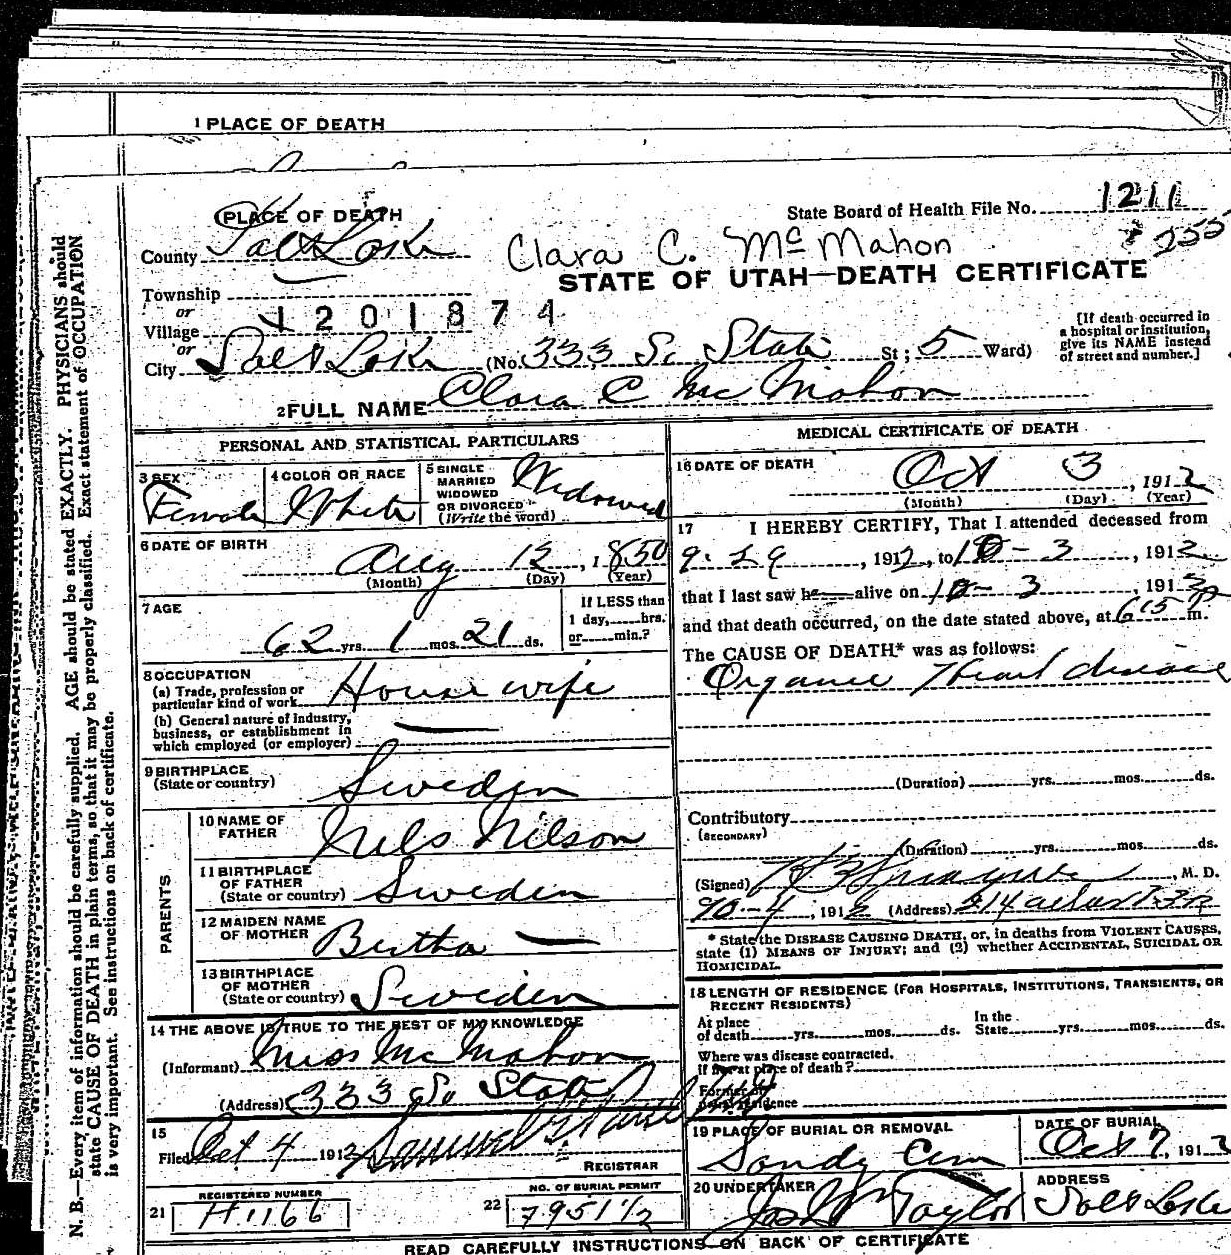 1 PLACE OF DEATH
PLACE OF DEATH
State Board of Health File No. 1211
County Salt Lake
Clara C. Mc Mahon
STATE OF UTAH—DEATH CERTIFICATE
Township
or
1201874
Village
or
City Salt Lake (No. 333 So. State St; 5 Ward)
[If death occurred in
a hospital or institution,
give its NAME instead
of street and number.]
2 FULL NAME Clara C Mc Mahon
PERSONAL AND STATISTICAL PARTICULARS
3 SEX Female
4 COLOR OR RACE White
5 SINGLE
MARRIED
WIDOWED
OR DIVORCED
(Write the word)
Widowed
6 DATE OF BIRTH
Aug 12, 1850
(Month) (Day) (Year)
7 AGE
62 yrs. 1 mos. 21 ds.
If LESS than
1 day, hrs.
or min.?
8 OCCUPATION
(a) Trade, profession or
particular kind of work House wife
(b) General nature of Industry,
business, or establishment in
which employed (or employer)
9 BIRTHPLACE
(State or country) Sweden
PARENTS
10 NAME OF
FATHER Nils Nilson
11 BIRTHPLACE
OF FATHER
(State or country) Sweden
12 MAIDEN NAME
OF MOTHER Bertha —
13 BIRTHPLACE
OF MOTHER
(State or country) Sweden
14 THE ABOVE IS TRUE TO THE BEST OF MY KNOWLEDGE
(Informant) Miss Mc Mahon
(Address) 333 So State
15
Filed Oct 4 1912 Samuel G.
REGISTRAR
21 REGISTERED NUMBER
H1166
22 NO. OF BURIAL PERMIT
7951 1/2
MEDICAL CERTIFICATE OF DEATH
16 DATE OF DEATH
Oct 3, 1912
(Month) (Day) (Year)
17 I HEREBY CERTIFY, That I attended deceased from
9-29, 1912, to 10-3, 1912
that I last saw h alive on 10-3, 191
and that death occurred, on the date stated above, at 615 P m.
The CAUSE OF DEATH* was as follows:
Organic Heart disease
(Duration) yrs. mos. ds.
Contributory
(SECONDARY)
(Duration) yrs. mos. ds.
(Signed) , M. D.
10-4, 1912 (Address) 214
* State the DISEASE CAUSING DEATH, or, in deaths from VIOLENT CAUSES,
state (1) MEANS OF INJURY; and (2) whether ACCIDENTAL, SUICIDAL OR
HOMICIDAL.
18 LENGTH OF RESIDENCE (FOR HOSPITALS, INSTITUTIONS, TRANSIENTS, OR
RECENT RESIDENTS)
At place
of death yrs. mos. ds.
In the
State yrs. mos. ds.
Where was disease contracted.
if not at place of death?
Former or
usual residence
19 PLACE OF BURIAL OR REMOVAL
Sandy Cem
DATE OF BURIAL
Oct 7, 191
20 UNDERTAKER
Jos Wm Taylor
ADDRESS
Salt Lake
READ CAREFULLY INSTRUCTIONS ON BACK OF CERTIFICATE
N. B.—Every item of information should be carefully supplied. AGE should be stated EXACTLY. PHYSICIANS should
state CAUSE OF DEATH in plain terms, so that it may be properly classified. Exact statement of OCCUPATION
is very important. See instructions on back of certificate.